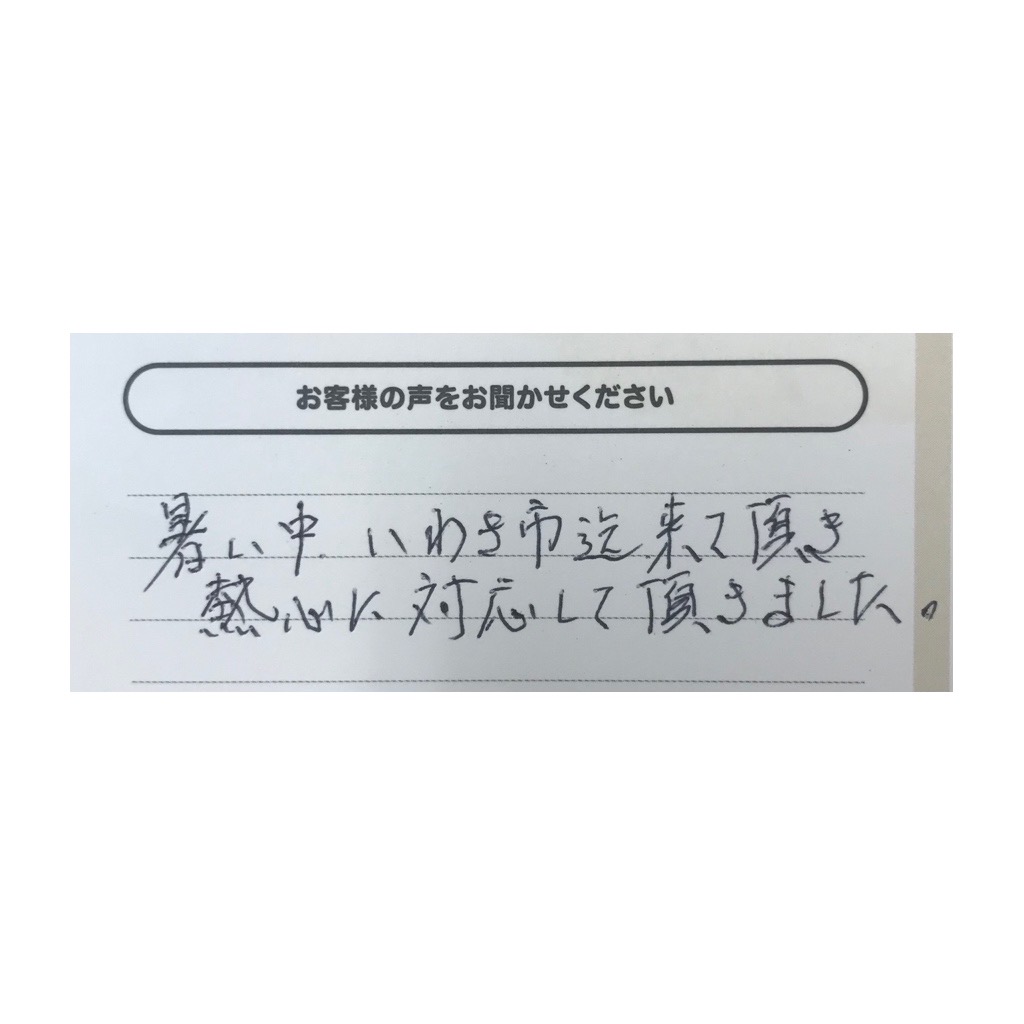 お客様の声をお聞かせください
暑い中いわき市迄来て頂き
熱心に対応して頂きました。